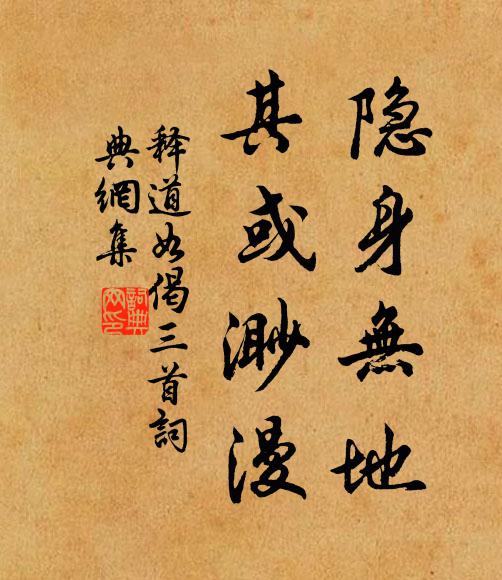 隐身無地
其或渺漫
释道如偈三首詞
典網集
詞典
网印